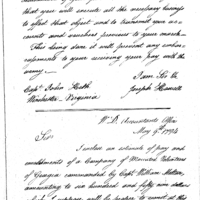 that you will execute all the necessary
to effect that object and to transmit your
counts and vouchers previous to your march.
This being done it will prevent any embar-
rassments to your receiving your pay with the
army.
I am Sir &c
Joseph Howell
Capt. John Heth
Winchester - Virginia
W. D. Accountants Office
May 9th 1794
Sir
I enclose an estimate of pay and
of a Company of Mounted Volunteers
of Georgia commanded by Capt. William
amounting to six hundred and fifty six dollars